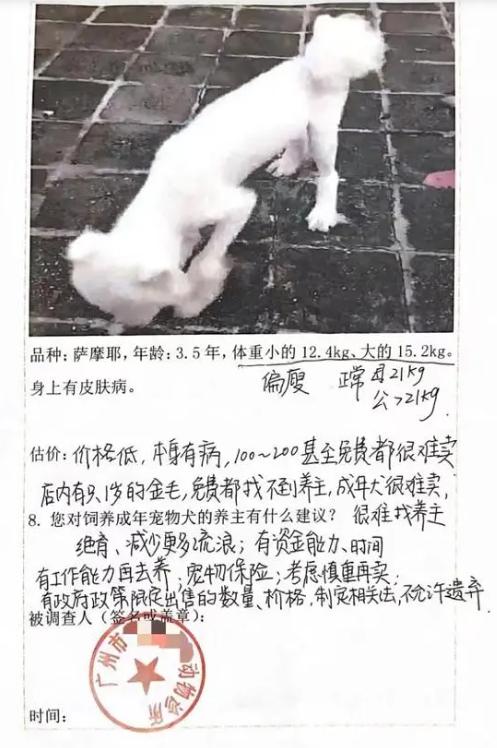 品种：萨摩耶，年龄：3.5年，体重小的12.4kg、大的15.2kg。
身上有皮肤病。
偏廋 正常 母21kg
公>21kg.
估价：价格低，本身有病，100~200甚至免费都很难卖
店内有只1岁的金毛，免费都找不到养主，成年犬很难卖，
8. 您对饲养成年宠物犬的养主有什么建议？ 很难找养主
绝育、减少更多流浪；有资金能力、时间
有工作能力再去养；宠物保险；考虑慎重再卖；
有政府政策限定出售的数量、价格，制定相关法，不允许遗弃
被调查人（签名或盖章）：
广州市 动物诊所
时间：